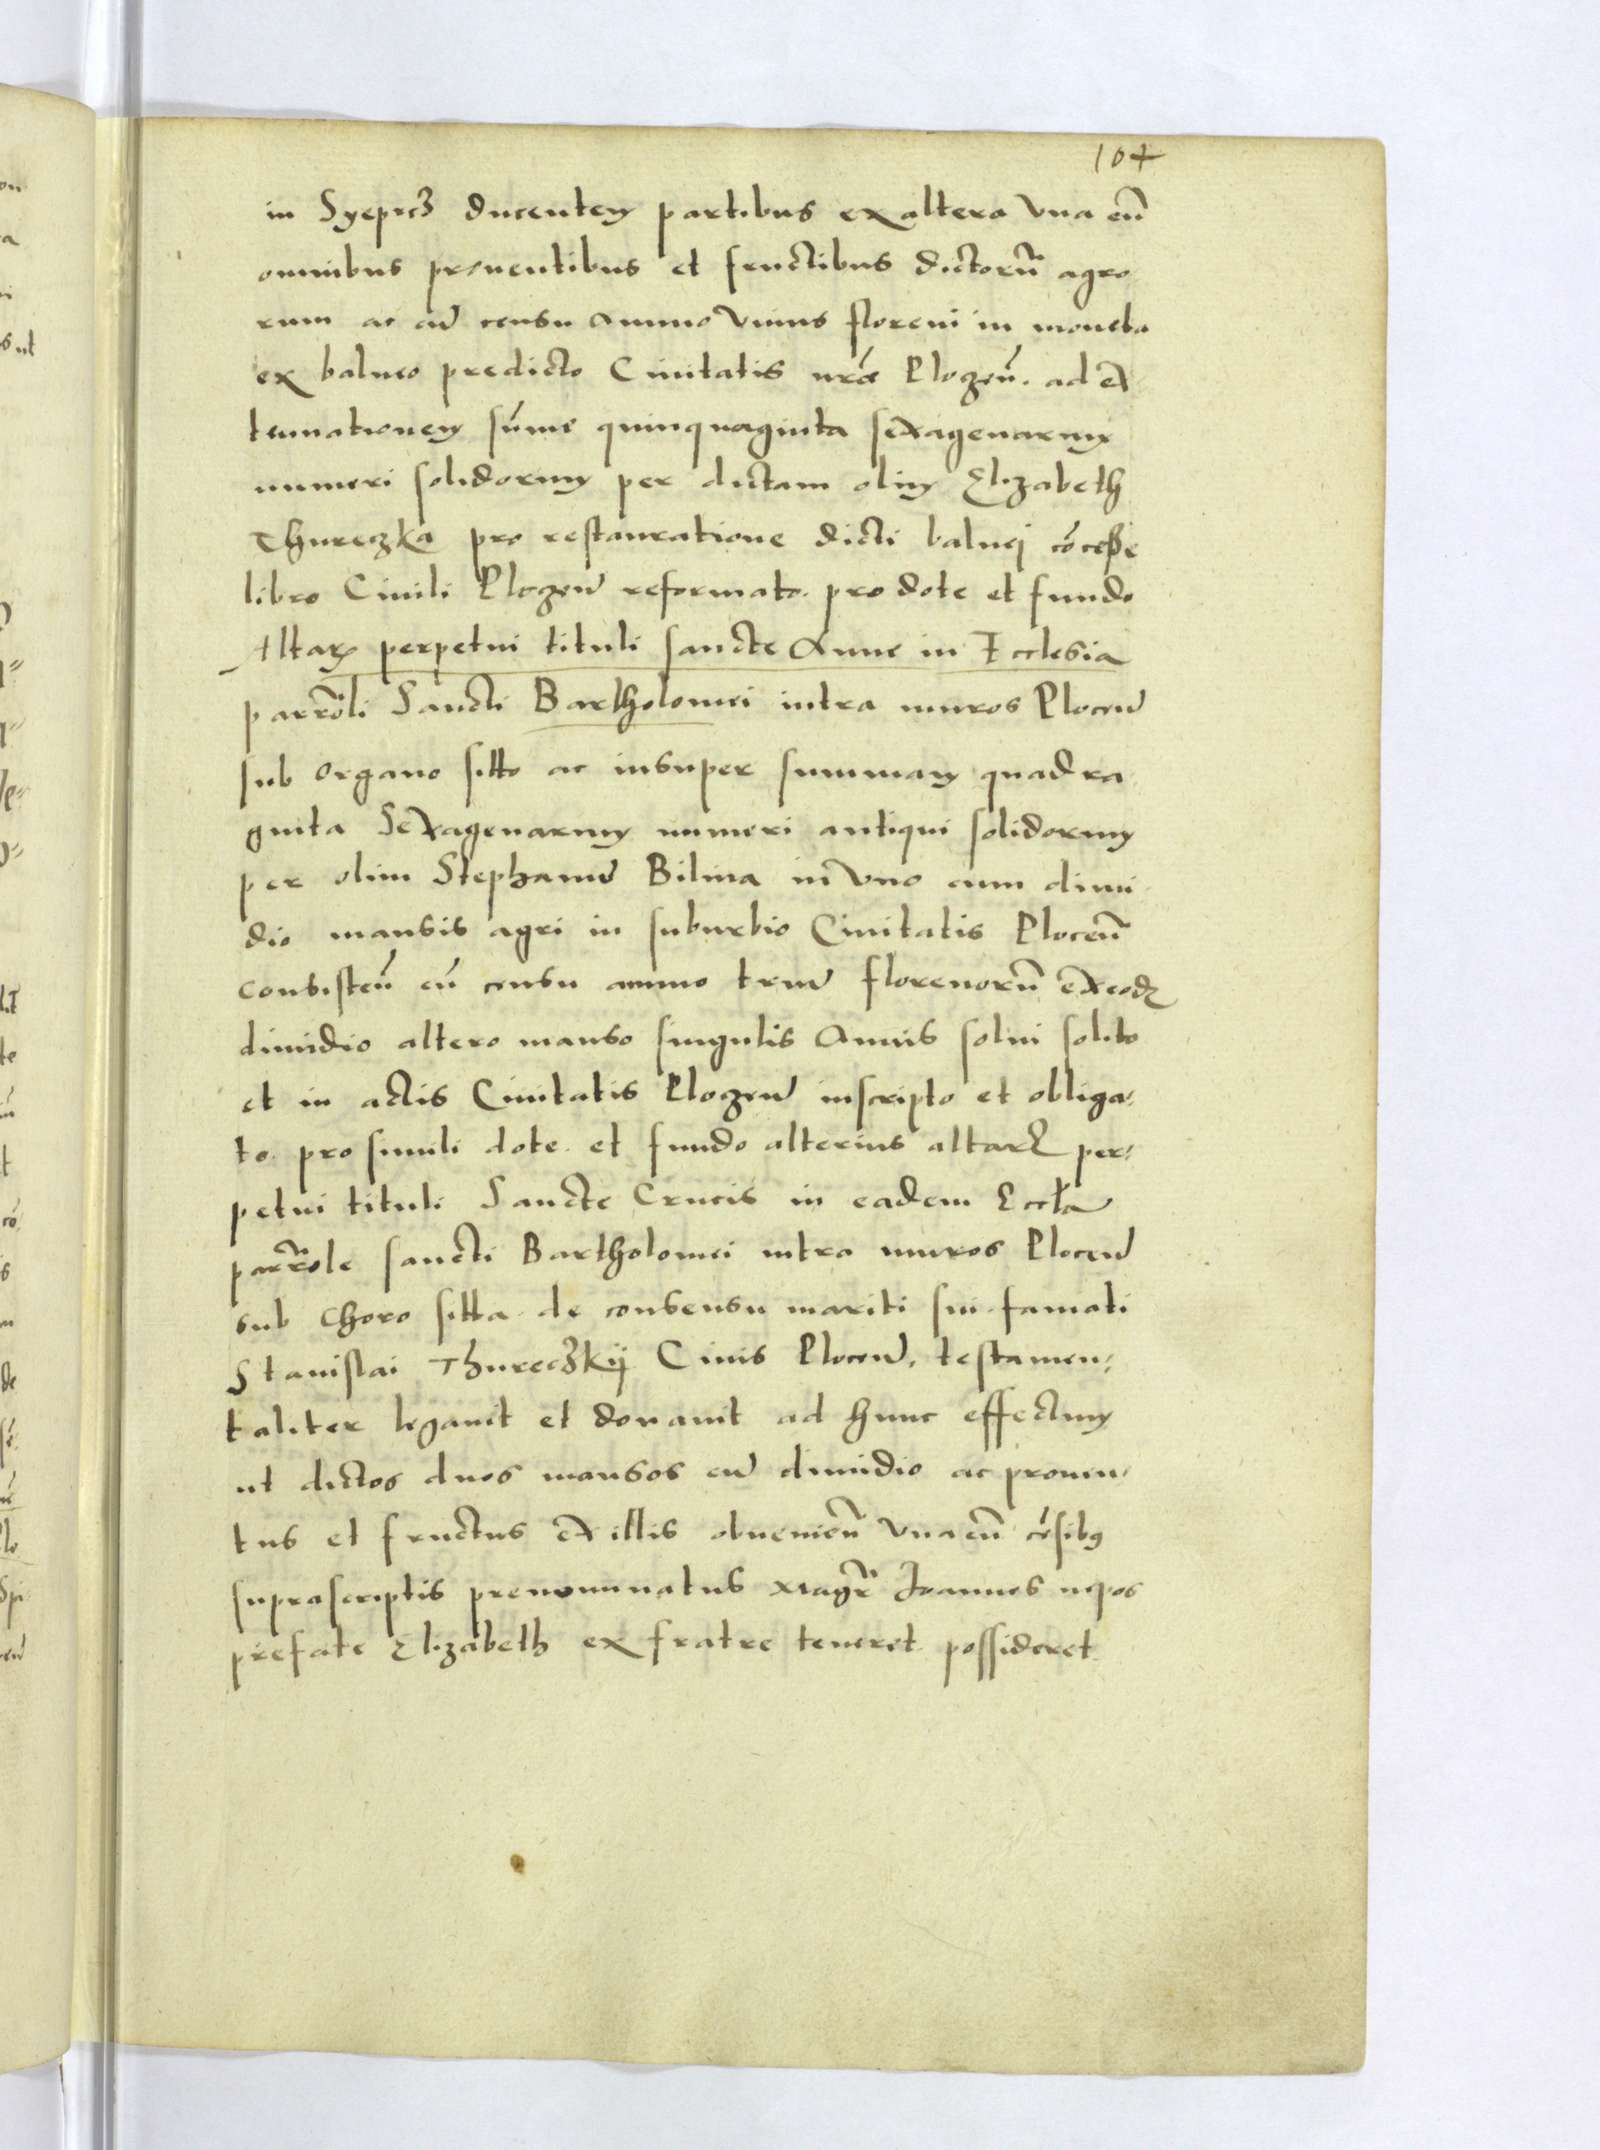 104
in Syepicz ducentem partibus ex altera Una cũ
omnibus proventibus et fructibus dictorũ agro
rum ac cũ censu annuo Unius floreni in moneta
ex balneo predicto Civitatis nrãe Plozeñ. ad ex
tenuationem sũme quinquaginta sexagenarum
numeri solidorum per dictam olim Elizabeth
Thureczka pro restauratione dicti balnej cõcesse
libro Civili Plozeñ reformato. pro dote et fundo
Altarꝭ perpetui tituli sancte Anne in Ecclesia
parrõli Sancti Bartholomei intra muros Ploceñ
sub Organo sitto ac insuper summam quadra
ginta Sexagenarum numeri antiqui solidorum
per olim Stephanũ Bilina in Uno cum dimi
dio mansis agri in suburbio Civitatis Ploceñ
consisteñ cũ censu annuo triũ florenorũ ex eodꝫ
dimidio altero manso singulis Annis solui solito
et in actis Civitatis Plozeñ inscripto et obliga-
to. pro simili dote. et fundo alterius altarꝭ per-
petui tituli Sancte Crucis in eadem Eccła
parrõle sancti Bartholomei intra muros Ploceñ
sub Choro sitta. de consensu mariti sui famati
Stanislai Thureczkij Civis Ploceñ, testamen-
taliter legauit et donauit ad hunc effectum
ut dictos duos mansos cũ dimidio ac prouen-
tus et fructus ex illis obuenieñ Una cũ cẽsibꝰ
suprascriptis prenominatus Magr̃ Joannes nepos
prefate Elizabeth ex fratre teneret possideret